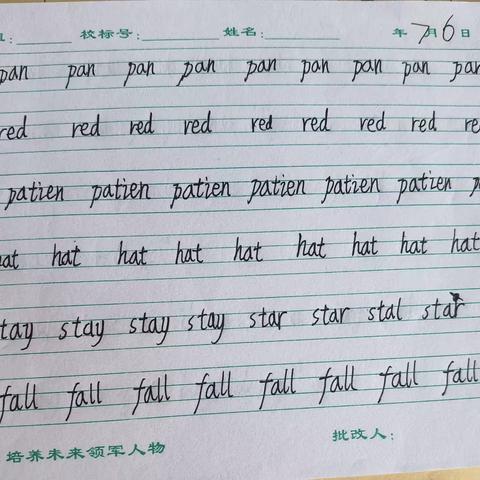 校标号: 姓名: 年 7月6日
pan pan pan pan pan pan pan pan pan
red red red red red red red red re
patien patien patien patien patien patien
at hat hat hat hat hat hat hat hat
tay stay stay stay star star stal star
fall fall fall fall fall fall fall fall
培养未来领军人物 批改人: